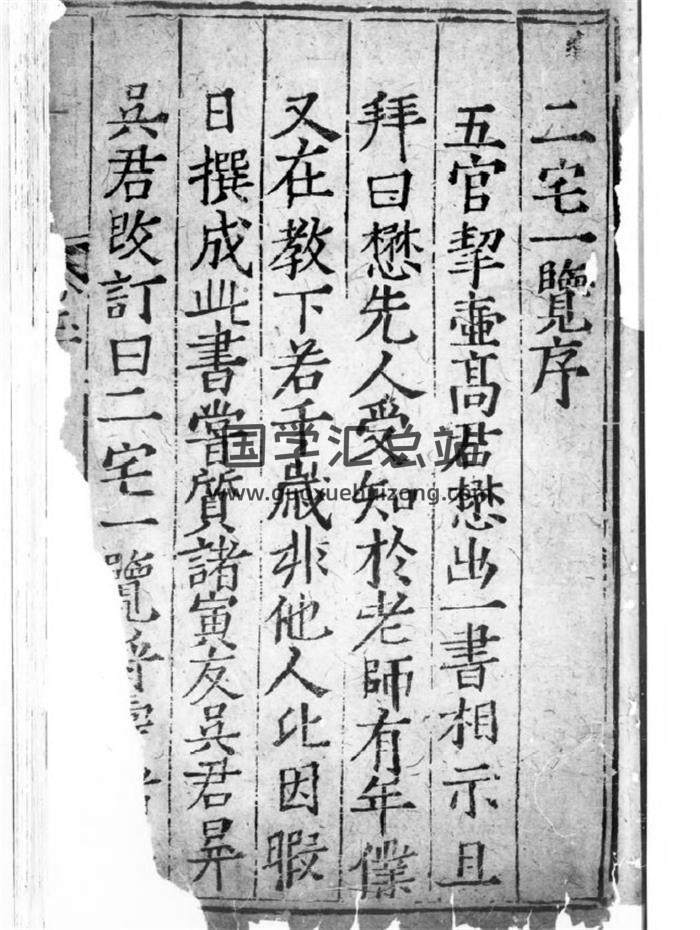 二宅一覽序
五官挈壺高君懋出一書相示且
拜曰懋先人受知於老師有年僕
又在教下若干歲非他人比因暇
日撰成此書嘗質諸寅友吳君昇
吳君改訂曰二宅一覽
国学汇总站
www.guoxuehuizong.com